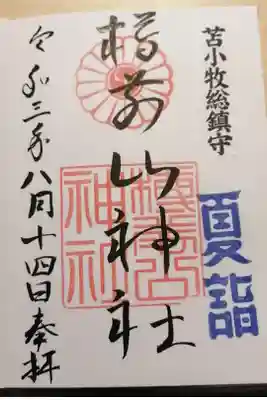 苫小牧総鎮守
夏詣
樽前山神社
令和三年八月十四日奉拝